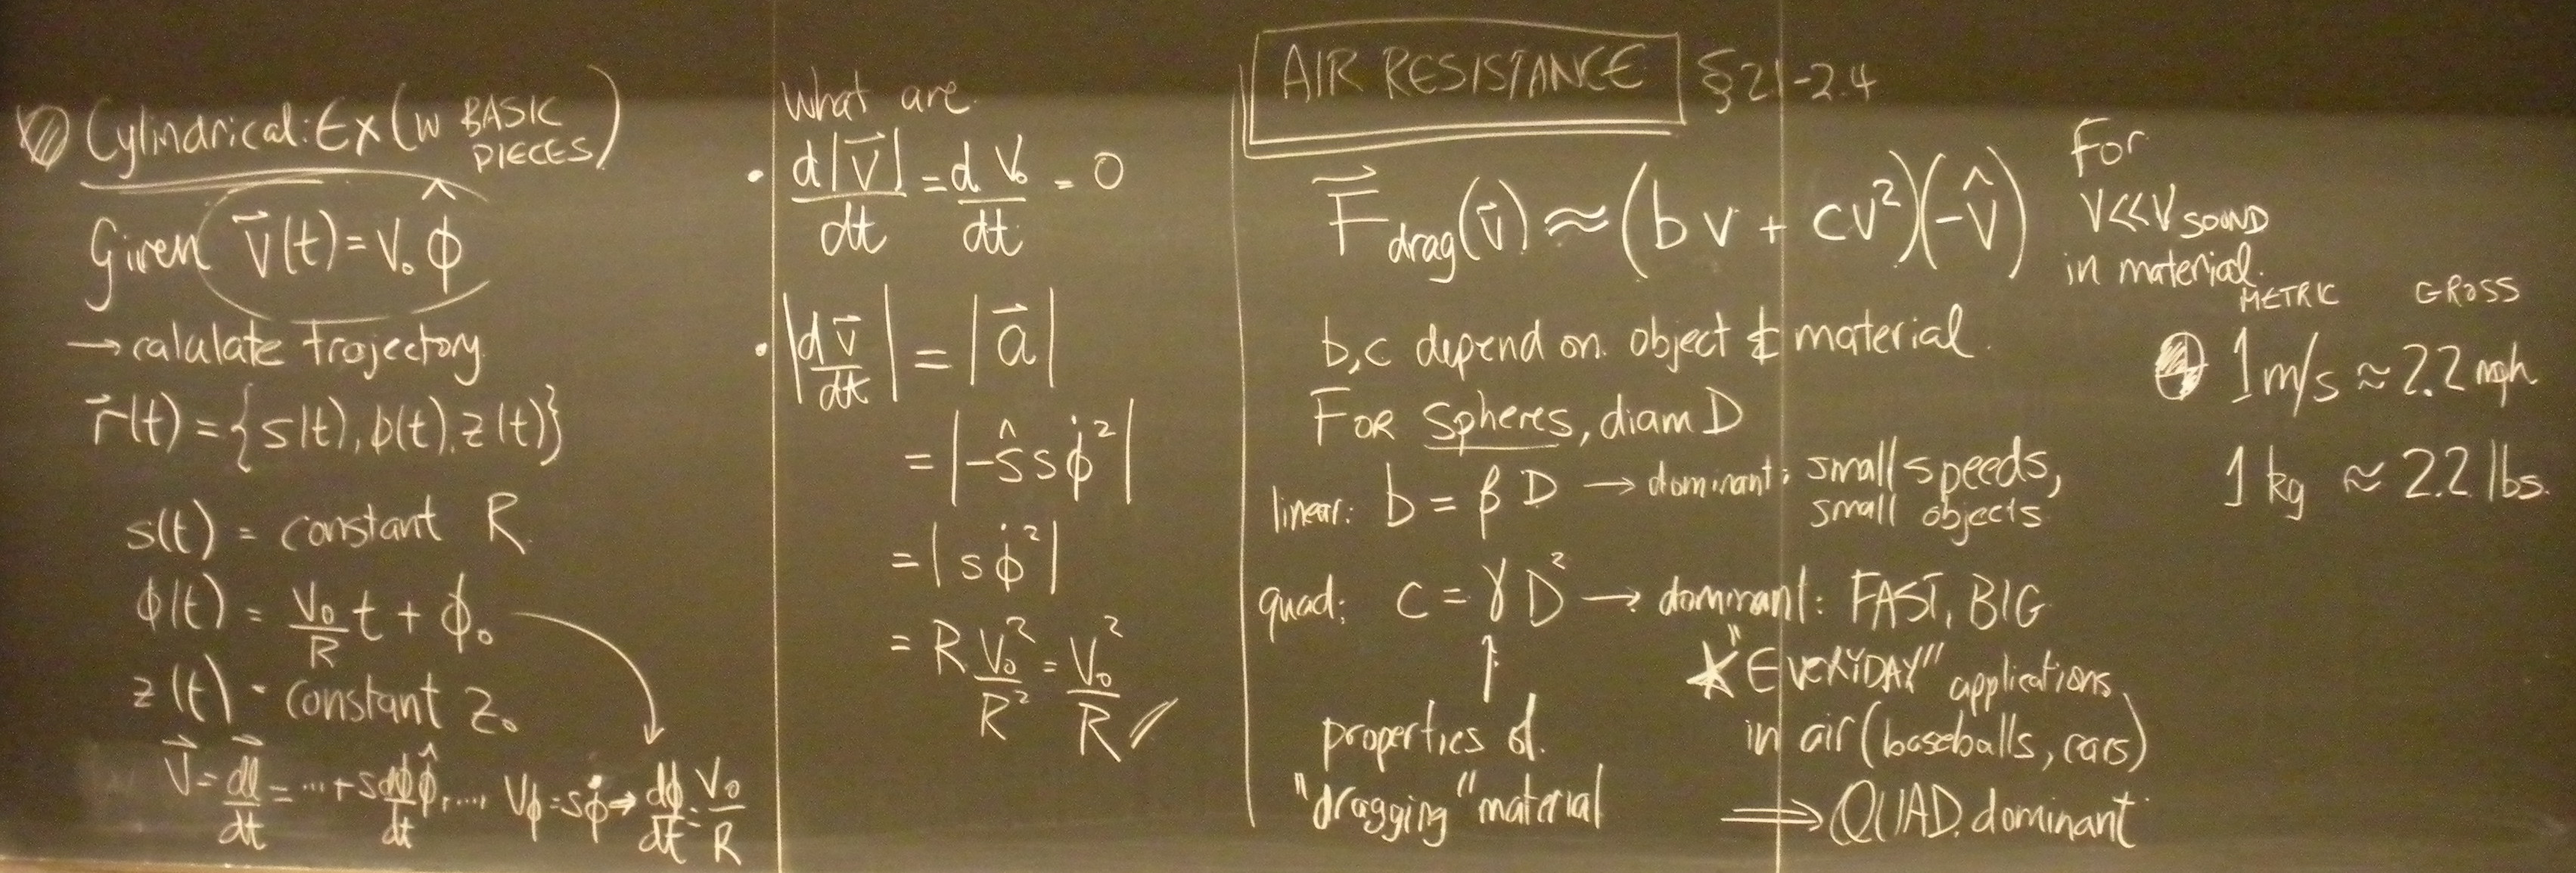 Cylindrical: Ex (w BASIC PIECES)
Given v⃗(t) = v₀ φ̂
→ calulate trajectory
r⃗(t) = {s(t), φ(t), z(t)}
s(t) = constant R
φ(t) = v₀/R t + φ₀
z(t) = constant z₀
v⃗ = dl⃗/dt = ... + s dφ/dt φ̂, .... vφ = sφ̇ → dφ/dt = v₀/R
What are
• d|v⃗|/dt = d v₀/dt = 0
• |dv⃗/dt| = |a⃗|
= |-ŝ s φ̇²|
= |s φ̇²|
= R v₀²/R² = v₀²/R
AIR RESISTANCE § 2.1-2.4
F⃗drag(v⃗) ≈ (bv + cv²)(-v̂)
For
v<<v SOUND
in material.
b,c depend on object & material.
FOR spheres, diam D
linear: b = β D → dominant: small speeds,
small objects
quad: c = γ D² → dominant: FAST, BIG
↑
properties of
"dragging" material
★ "EVERYDAY" applications
in air (baseballs, cars)
⟹ QUAD. dominant
METRIC GROSS
1 m/s ≈ 2.2 mph
1 kg ≈ 2.2 lbs.